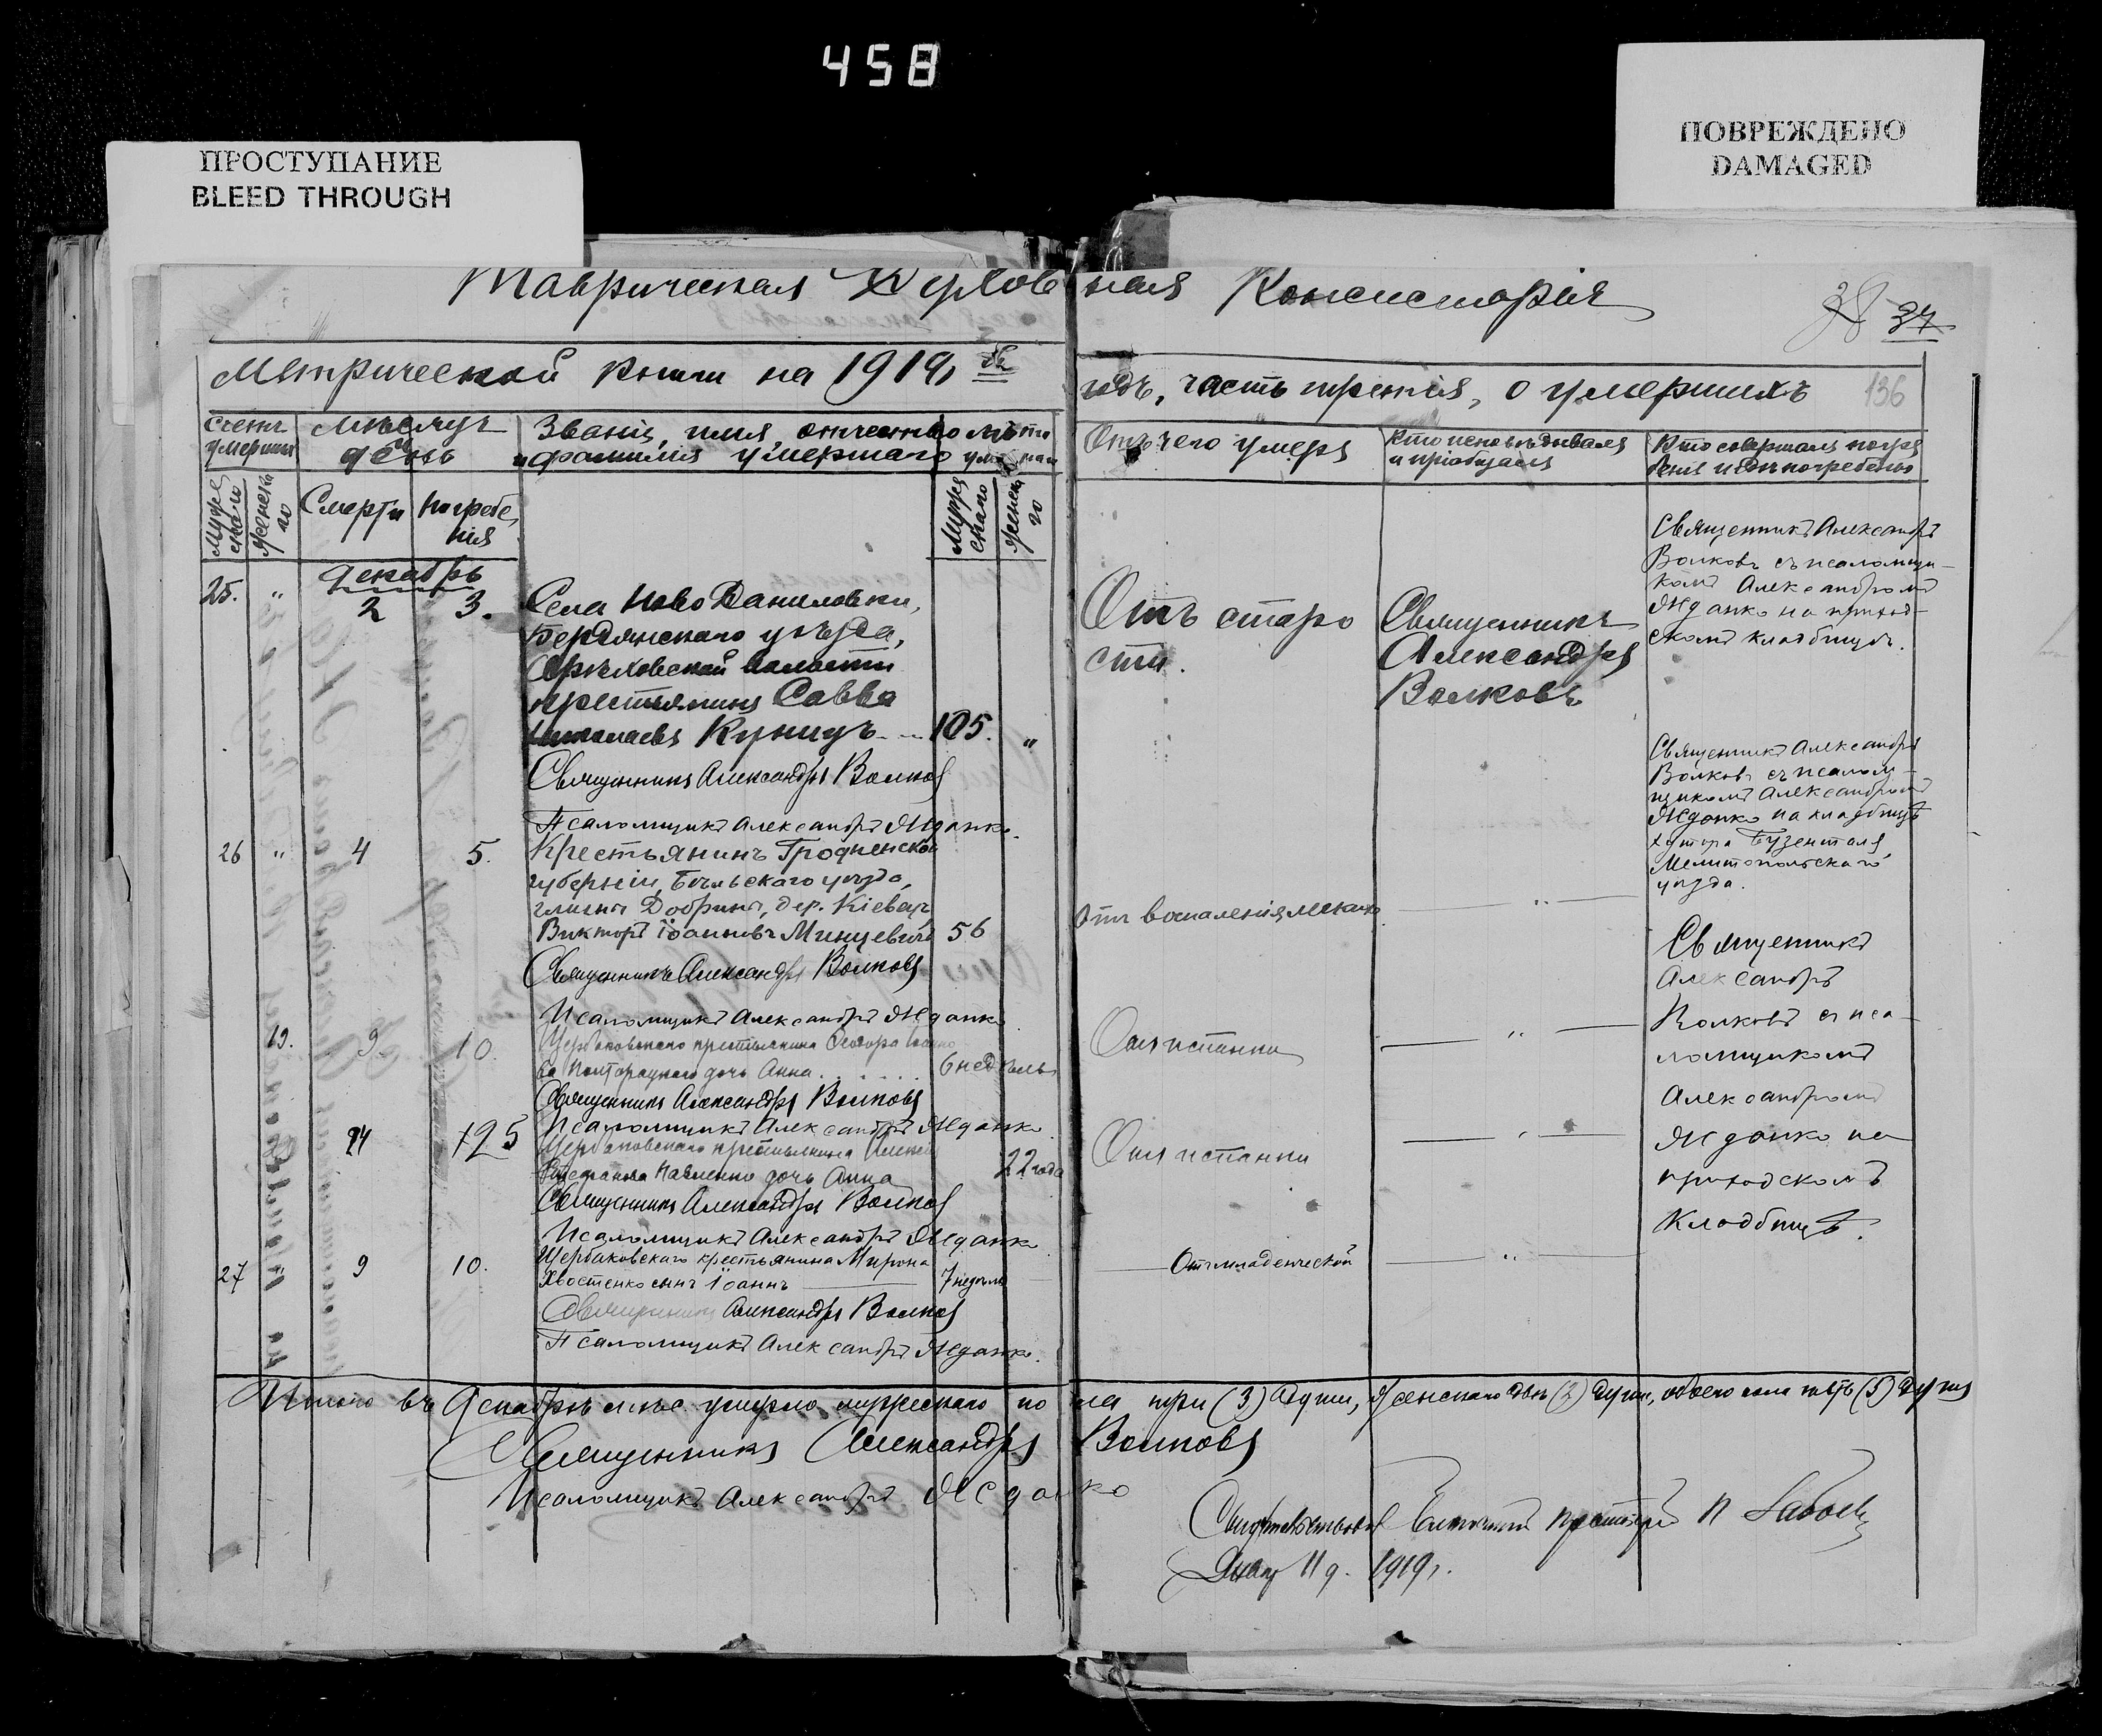 458
ПРОСТУПАНИЕ
BLEED THROUGH
ПОВРЕЖДЕНО
DAMAGED
Таврическая Духовная Консисторія
38 37
Метрической книги на 1919,
годъ, часть третія, о умершихъ
136
Счетъ умершихъ
Мужескаго
Женскаго
Мѣсяцъ и день
Смерти
Погребенія
Званіе, имя, отчество
и фамилія умершаго
Лѣта умершаго
Мужескаго
Женскаго
Отъ чего умеръ
Кто исповѣдывалъ
и пріобщалъ
Кто совершалъ погре
бенія и гдѣ погребены
Декабрь
25. " 2 3.
Села Ново Даниловки,
Бердянскаго уѣзда,
Орѣховской волости
крестьянинъ Савва
Николаевъ Куницъ 105. "
Отъ старо
сти.
Священникъ
Александръ
Волковъ
Священникъ Александръ
Волковъ съ псаломщи-
комъ Александромъ
Жданко на приход-
скомъ кладбищѣ.
Священникъ Александръ Волковъ
Псаломщикъ Александръ Жданко.
26 " 4 5.
Крестьянинъ Гродненской
губерніи, Бѣльскаго уѣзда,
гмины Добрина, дер. Кіевецъ
Викторъ Іоанновъ Минцевичъ 56
Отъ воспаленія легкихъ
— " —
Священникъ Александръ
Волковъ съ псалом-
щикомъ Александромъ
Жданко на кладбищѣ
хутора Бузенталя
Мелитопольскаго
уѣзда.
Священникъ Александръ Волковъ
Псаломщикъ Александръ Жданко
13. 9 10.
Щербаковскаго крестьянина Ѳедора Іоанно
ва Полторацкаго дочь Анна 6 недѣль
Отъ испанки
— " —
Священникъ
Александръ
Волковъ съ пса-
ломщикомъ
Александромъ
Жданко на
приходскомъ
кладбищѣ.
Священникъ Александръ Волковъ
Псаломщикъ Александръ Жданко
24 25
Щербаковскаго крестьянина
Стефанова Павленко дочь Анна 22 года
Отъ испанки
— " —
Священникъ Александръ Волковъ
Псаломщикъ Александръ Жданко
27 " 9 10.
Щербаковскаго крестьянина Мирона
Хвостенко сынъ Іоаннъ 7 недѣль
Отъ младенческой
— " —
Священникъ Александръ Волковъ
Псаломщикъ Александръ Жданко.
Итого въ Декабрѣ мѣс. умерло мужескаго пола три (3) души, женскаго двѣ (2) души, обоего пола пять (5) душъ
Священникъ Александръ Волковъ
Псаломщикъ Александръ Жданко
Свидѣтельствовалъ Благочинный Протоіерей П.
11 д. 1919 г.